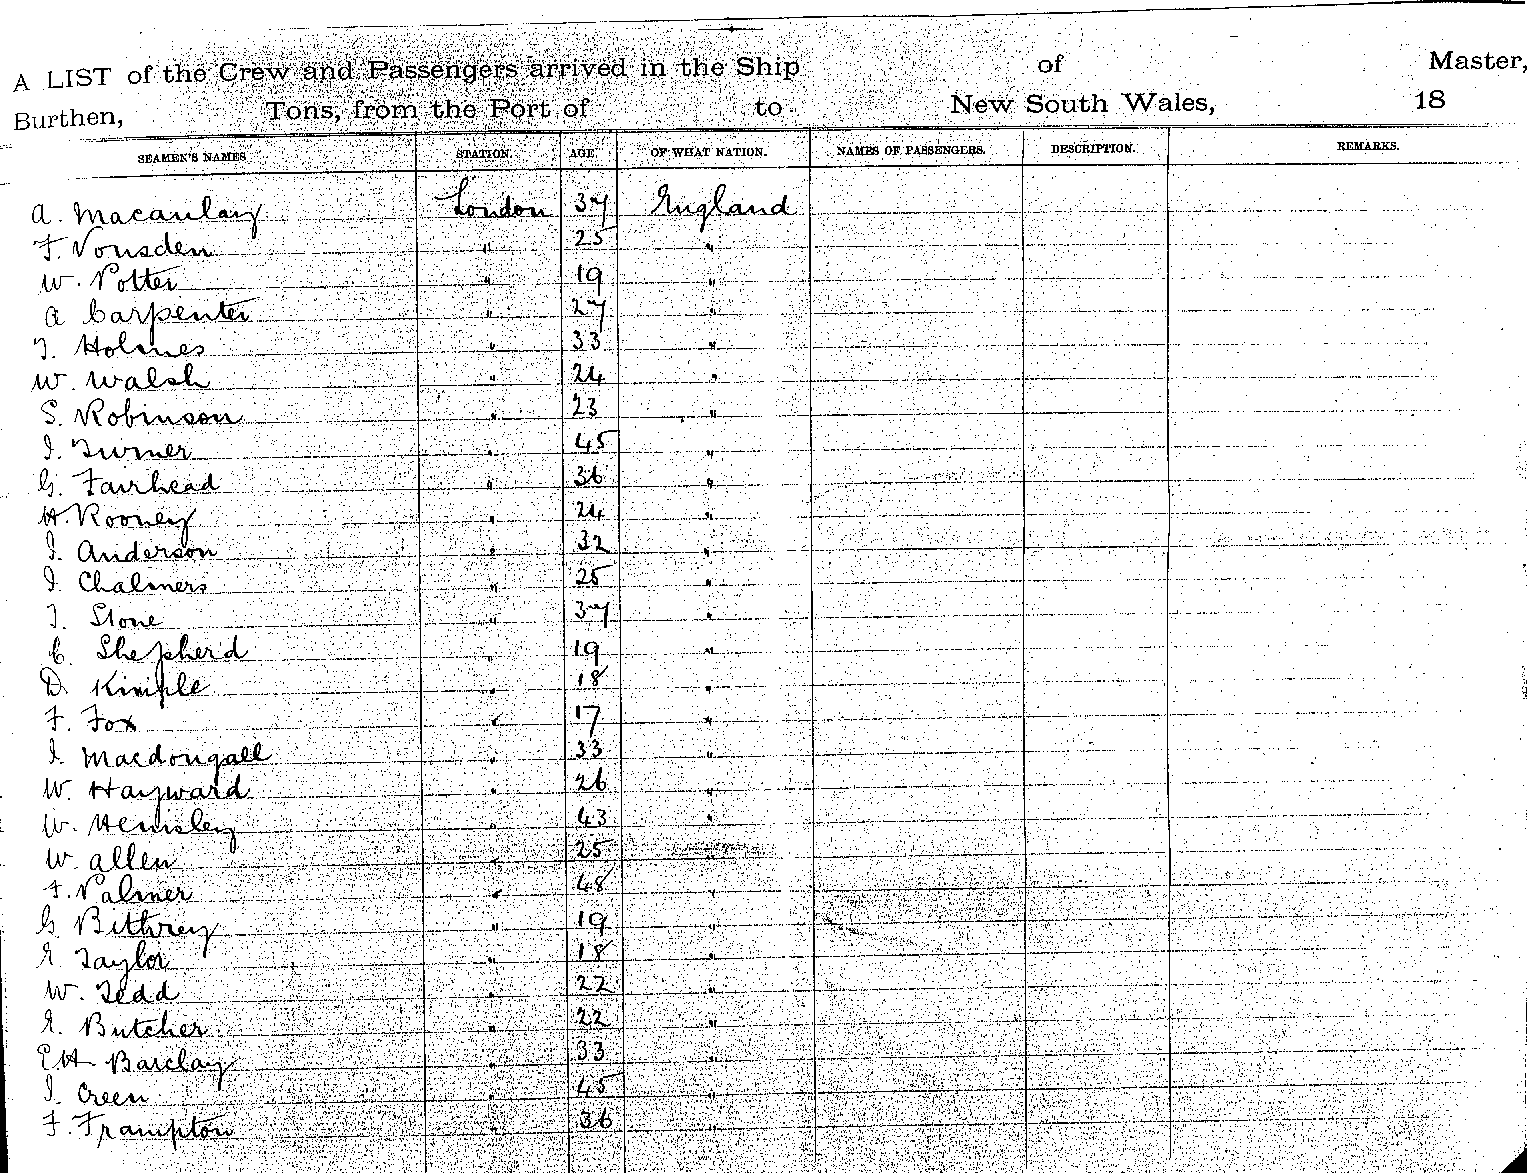 A LIST of the Crew and Passengers arrived in the Ship of Master,
Burthen, Tons, from the Port of to New South Wales, 18
SEAMEN'S NAMES STATION. AGE OF WHAT NATION. NAMES OF PASSENGERS. DESCRIPTION. REMARKS.
A. Macaulay London 37 England
F. Vousden " 25 "
W. Potter " 19 "
A Carpenter " 27 "
T. Holmes " 33 "
W. Walsh " 24 "
S. Robinson " 23 "
J. Turner " 45 "
G. Fairhead " 36 "
H. Rooney " 24 "
J. Anderson " 32 "
J. Chalmers " 25 "
T. Stone " 37 "
C. Shepherd " 19 "
D. Kimple " 18 "
F. Fox " 17 "
J. Macdougall " 33 "
W. Hayward " 26 "
W. Hemsley " 43 "
W. Allen " 25 "
F. Palmer " 48 "
G. Bithrey " 19 "
E. Taylor " 18 "
W. Tedd " 22 "
E. Butcher " 22 "
EH Barclay " 33 "
J. Creen " 45 "
F. Frampton " 36 "